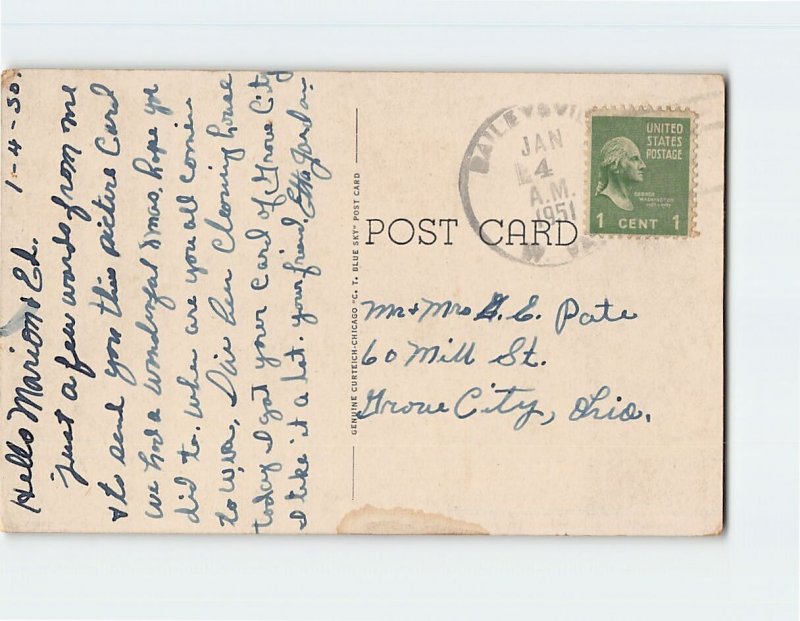 1-4-50.
Hello Marion & Ed.
just a few words from me
& to send you this picture Card
we had a wonderful Xmas. hope you
did to. when are you all comein
to W. Va, I've been cleaning house
today I got your Card of Grove City
I like it a lot. your friend. Etta
GENUINE CURTEICH-CHICAGO "C. T. BLUE SKY" POST CARD
POST CARD
BAILEYSVI
JAN
4
A.M.
1951
W. VA.
UNITED
STATES
POSTAGE
GEORGE
WASHINGTON
1789-1797
1 CENT 1
Mr & Mrs G. E. Pate
60 Mill St.
Grove City, Ohio.